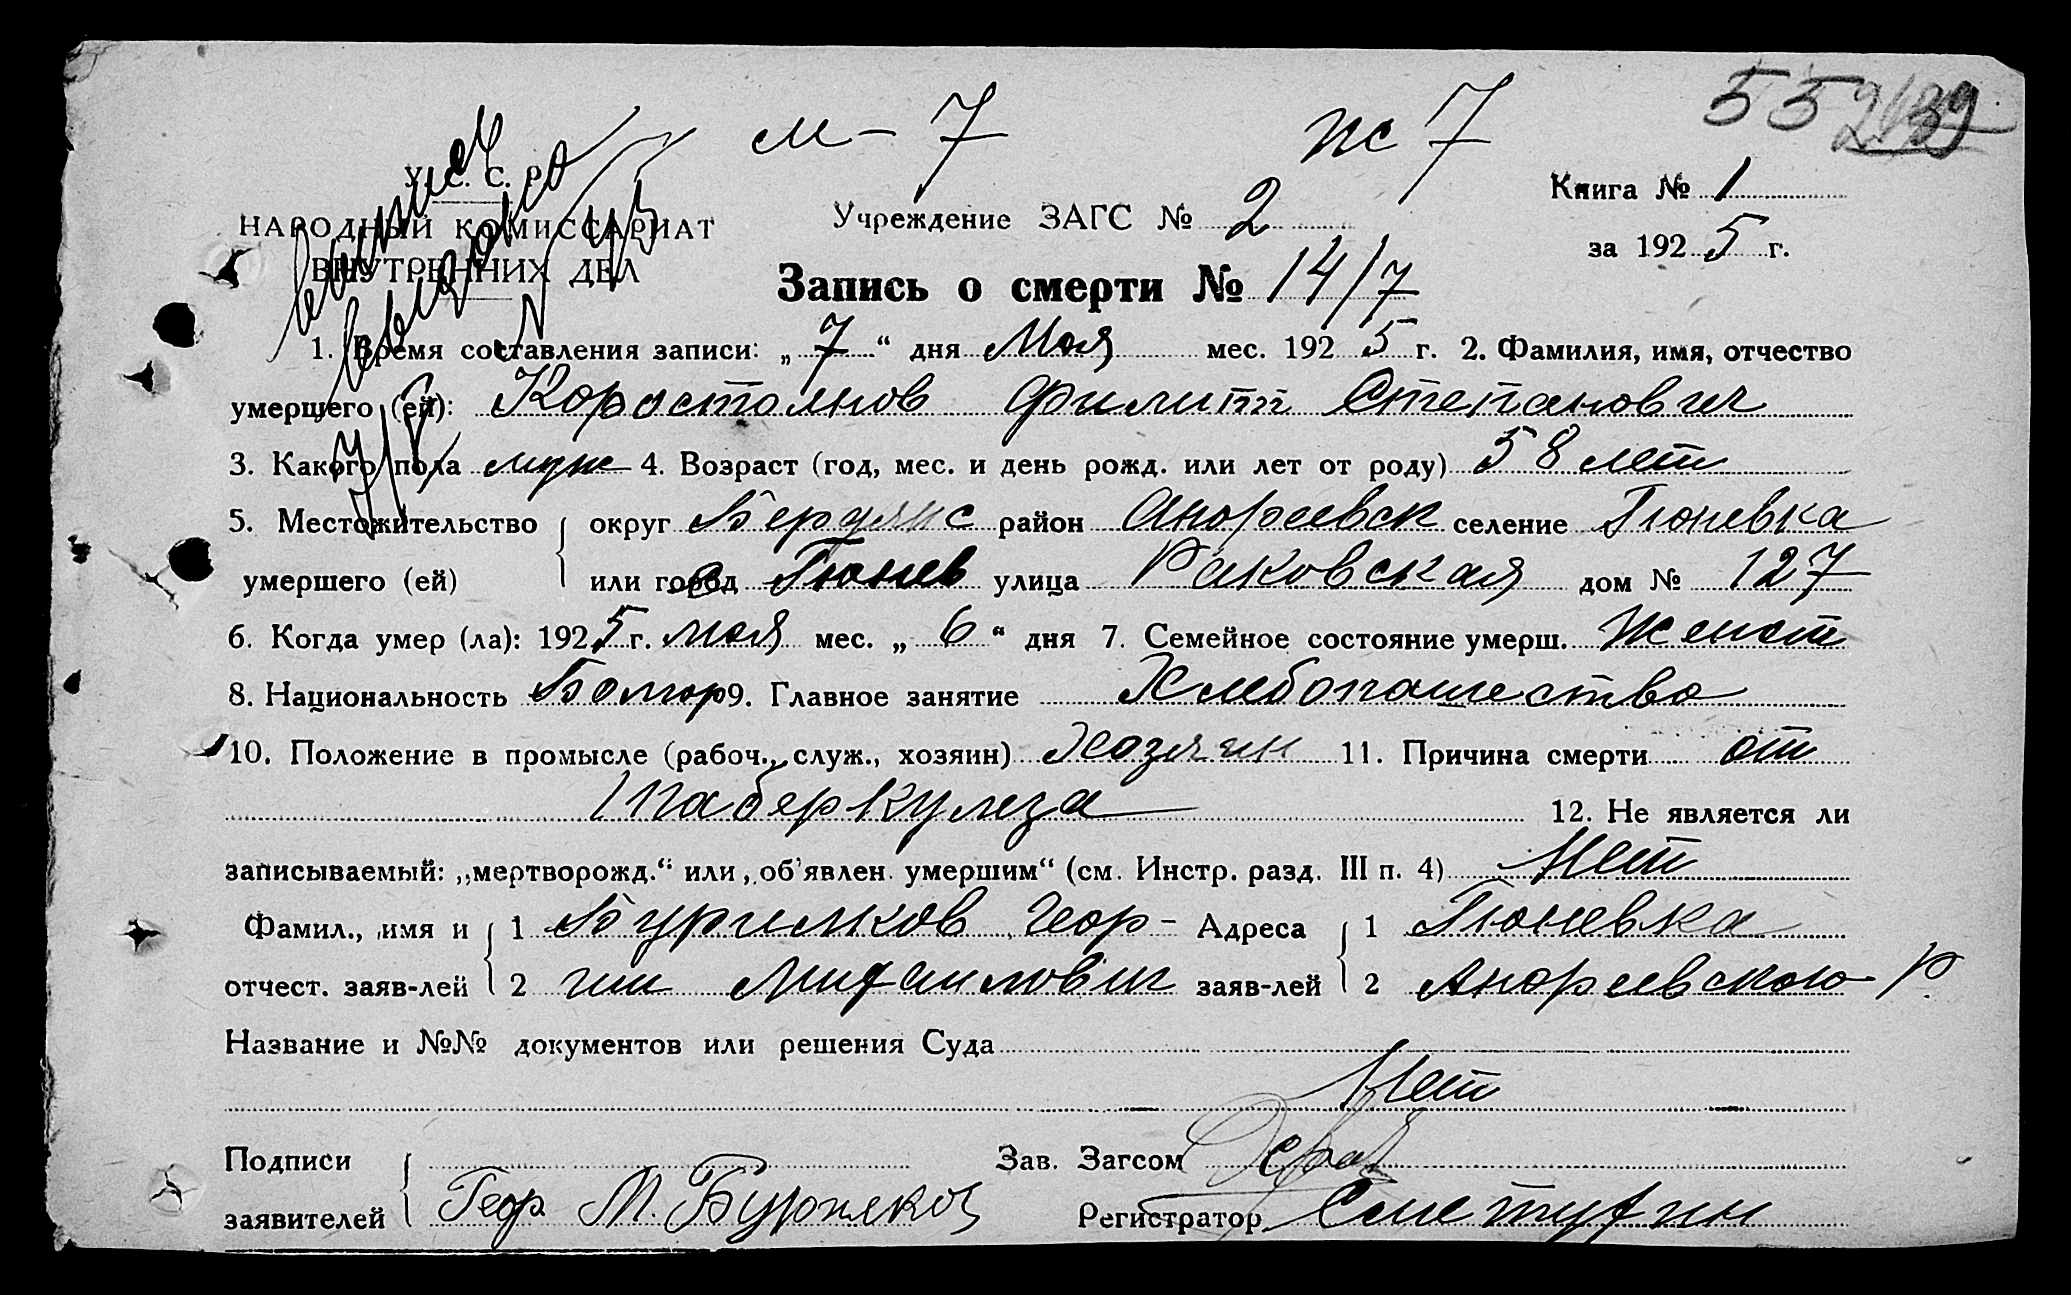 м – 7 ж 7 552
У. С. С. Р.
НАРОДНЫЙ КОМИССАРИАТ
ВНУТРЕННИХ ДЕЛ
Учреждение ЗАГС № 2
Книга № 1
за 1925 г.
Запись о смерти № 14/7
1. Время составления записи: „7“ дня Мая мес. 1925 г. 2. Фамилия, имя, отчество
умершего (ей): Коростолнов Филипп Степанович
3. Какого пола муж 4. Возраст (год, мес. и день рожд. или лет от роду) 58 лет
5. Местожительство округ Бердянс район Андреевск селение Гюневка
умершего (ей) или город с Гюнев улица Раковская дом № 127
6. Когда умер (ла): 1925 г. мая мес. „6“ дня 7. Семейное состояние умерш. Женат
8. Национальность Болгар 9. Главное занятие Хлебопашество
10. Положение в промысле (рабоч., служ., хозяин) Хозяин 11. Причина смерти от
таберкулза 12. Не является ли
записываемый: „мертворожд.“ или „об'явлен умершим“ (см. Инстр. разд. III п. 4) Нет
Фамил., имя и 1 Бурилков Геор- Адреса 1 Гюневка
отчест. заяв-лей 2 гии Михаилович заяв-лей 2 Андреевского р.
Название и №№ документов или решения Суда
Нет
Подписи Зав. Загсом
заявителей Геор М. Бурлеков Регистратор